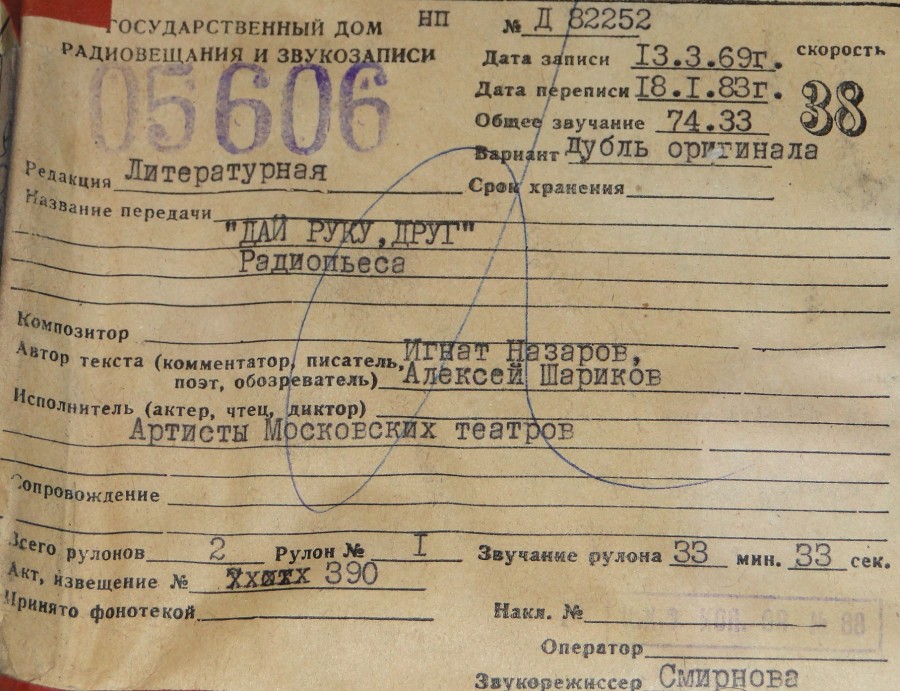 ГОСУДАРСТВЕННЫЙ ДОМ НП № Д 82252
РАДИОВЕЩАНИЯ И ЗВУКОЗАПИСИ
05606
Дата записи 13.3.69г. скорость
Дата переписи 18.I.83г. 38
Общее звучание 74.33
Вариант Дубль оригинала
Редакция Литературная Срок хранения
Название передачи
"ДАЙ РУКУ,ДРУГ"
Радиопьеса
Композитор
Автор текста (комментатор, писатель, Игнат Назаров,
поэт, обозреватель) Алексей Шариков
Исполнитель (актер, чтец, диктор)
Артисты Московских театров
Сопровождение
Всего рулонов 2 Рулон № I Звучание рулона 33 мин. 33 сек.
Акт, извещение № 390
Принято фонотекой
Накл. №
Оператор
Звукорежиссер Смирнова